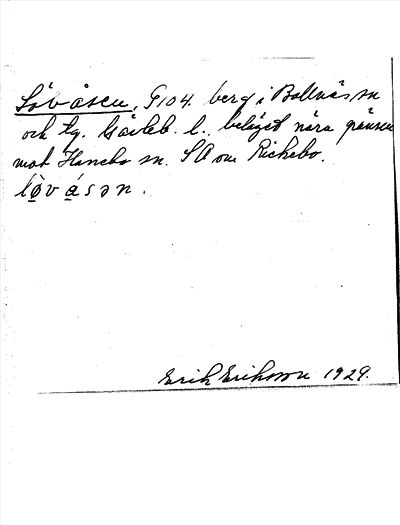 Lövåsen, G104. berg i Bollnäs sn
och tg. Gävleb. l. beläget nära gränsen
mot Hanebo sn. SA om Rickebo.
lövåsən.
Erik Eriksson 1929.